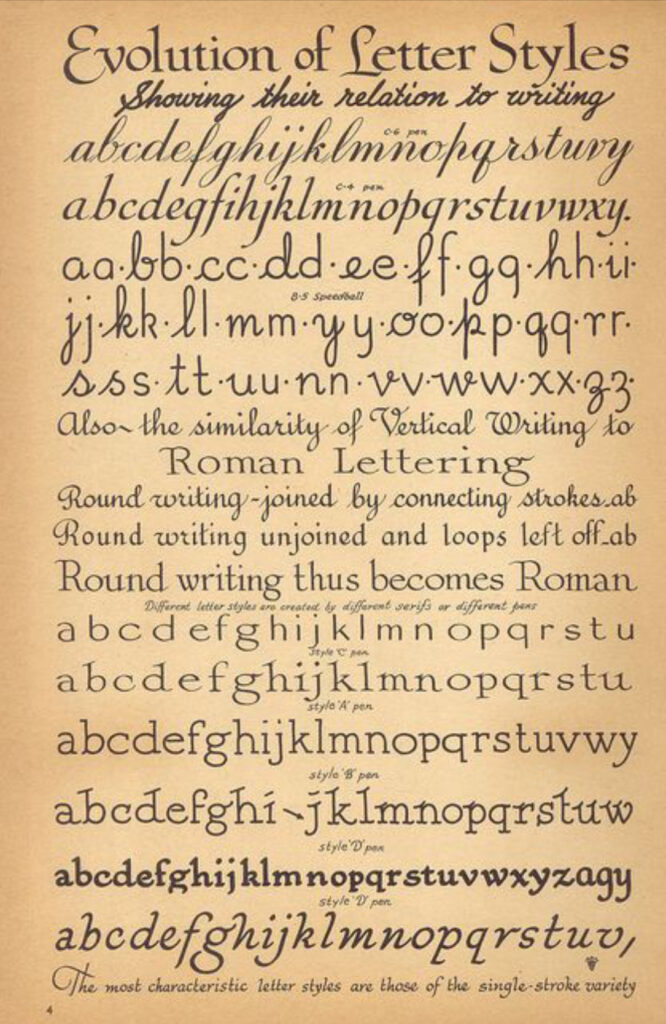 Evolution of Letter Styles
Showing their relation to writing
C-6 pen
abcdefghijklmnopqrstuvy
C-4 pen
abcdegfihjklmnopqrstuvwxy.
aa·bb·cc·dd·ee·ff·gg·hh·ii·
B-5 Speedball
jj·kk·ll·mm·yy·oo·pp·qq·rr·
sss·tt·uu·nn·vv·ww·xx·zz·
Also~the similarity of Vertical Writing to
Roman Lettering
Round writing-joined by connecting strokes_ab
Round writing unjoined and loops left off_ab
Round writing thus becomes Roman
Different letter styles are created by different serifs or different pens
abcdefghijklmnopqrstu
Style 'C' pen
abcdefghijklmnopqrstu
style 'A' pen
abcdefghijklmnopqrstuvwy
style 'B' pen
abcdefghi~jklmnopqrstuw
style 'D' pen
abcdefghijklmnopqrstuvwxyzagy
style 'D' pen
abcdefghijklmnopqrstuv,
The most characteristic letter styles are those of the single-stroke variety
4